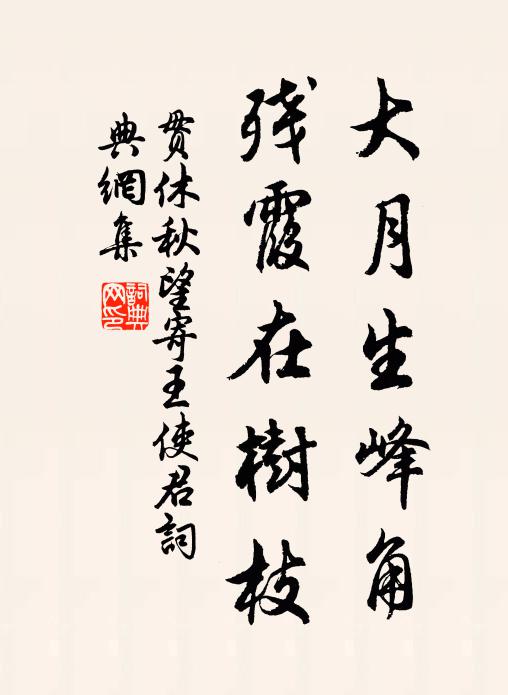 大月生峰角
残霞在樹枝
贯休秋望寄王使君詞
典網集
詞典
网印